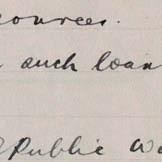 ources.
such loan
Public Wo